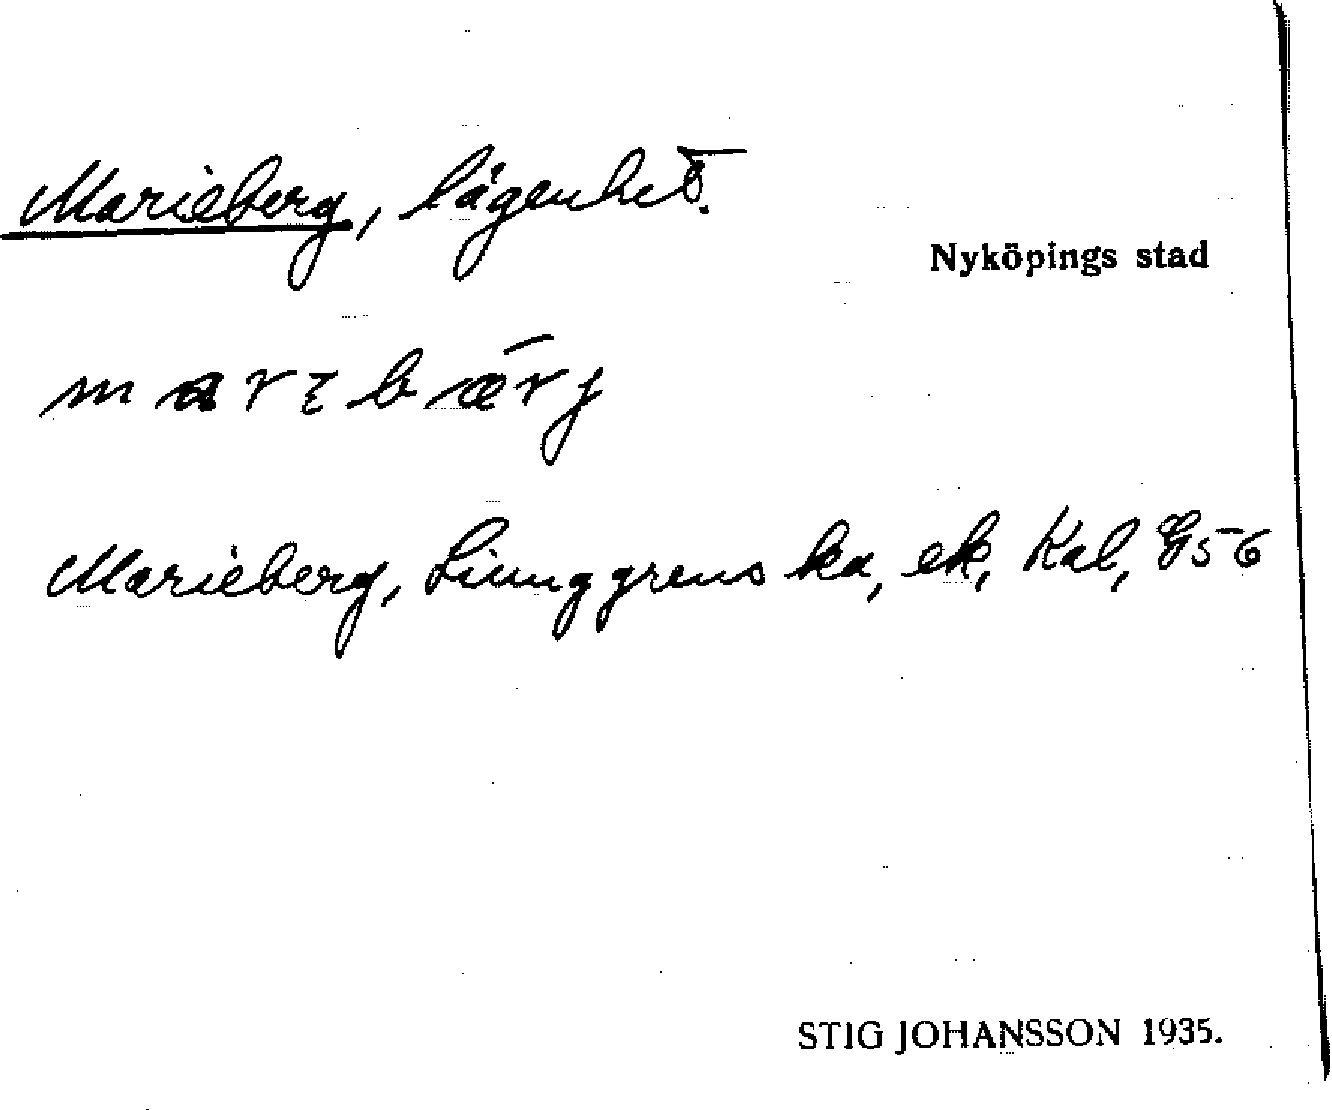 Marieberg, lägenhet.
Nyköpings stad
maribärj
Marieberg, Ljunggrenska, ek, Kal, G56
STIG JOHANSSON 1935.